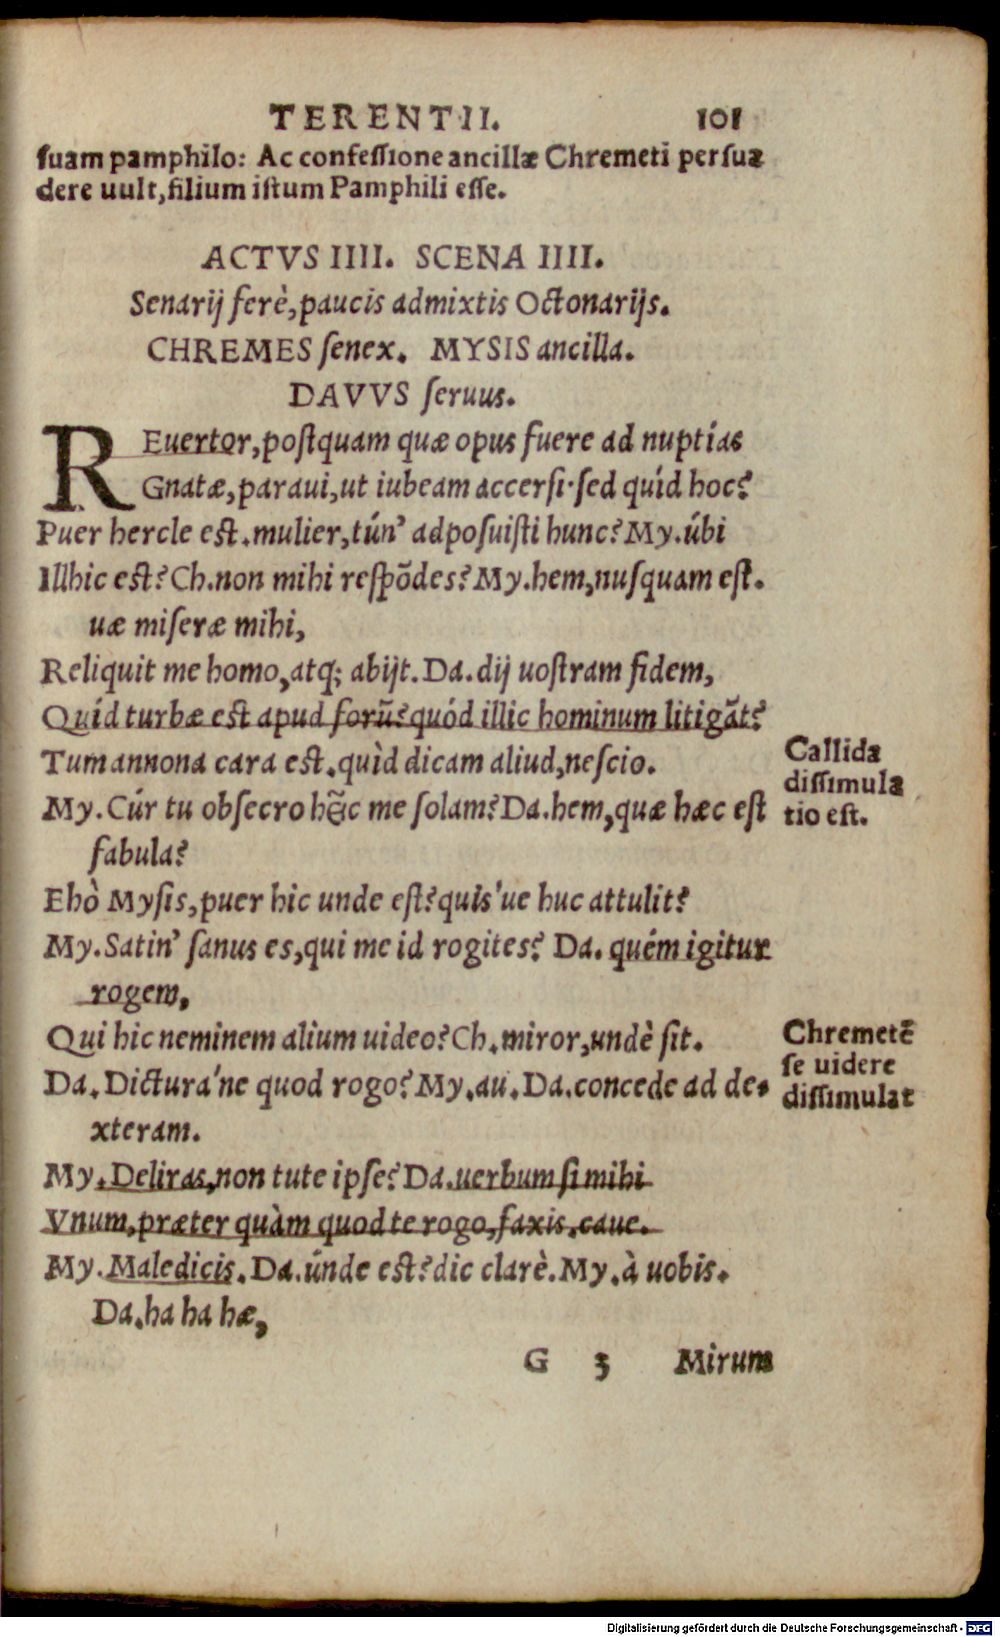 TERENTII. 101
suam pamphilo: Ac confessione ancillæ Chremeti persua
dere uult, filium istum Pamphili esse.
ACTVS IIII. SCENA IIII.
Senarij ferè, paucis admixtis Octonarijs.
CHREMES senex. MYSIS ancilla.
DAVVS seruus.
REuertor, postquam quæ opus fuere ad nuptias
Gnatæ, paraui, ut iubeam accersi. sed quid hoc?
Puer hercle est. mulier, tún' adposuisti hunc? My. úbi
Illhic est? Ch. non mihi respōdes? My. hem, nusquam est.
uæ miseræ mihi,
Reliquit me homo, atq; abijt. Da. dij uostram fidem,
Quid turbæ est apud forū? quód illic hominum litigāt?
Tum annona cara est. quìd dicam aliud, nescio.
My. Cúr tu obsecro hĩc me solam? Da. hem, quæ hæc est
fabula?
Ehò Mysis, puer hic unde est? quis'ue huc attulit?
My. Satin' sanus es, qui me id rogites? Da. quém igitur
rogem,
Qui hic neminem alium uideo? Ch. miror, undè sit.
Da. Dictura'ne quod rogo? My. au. Da. concede ad de-
xteram.
My. Deliras, non tute ipse? Da. uerbum si mihi
Vnum, præter quàm quod te rogo, faxis, caue.
My. Maledicis. Da. únde est? dic clarè. My. à uobis.
Da. ha ha hæ,
G 3 Mirum
Callida
dissimula
tio est.
Chremetē
se uidere
dissimulat
Digitalisierung gefördert durch die Deutsche Forschungsgemeinschaft - DFG